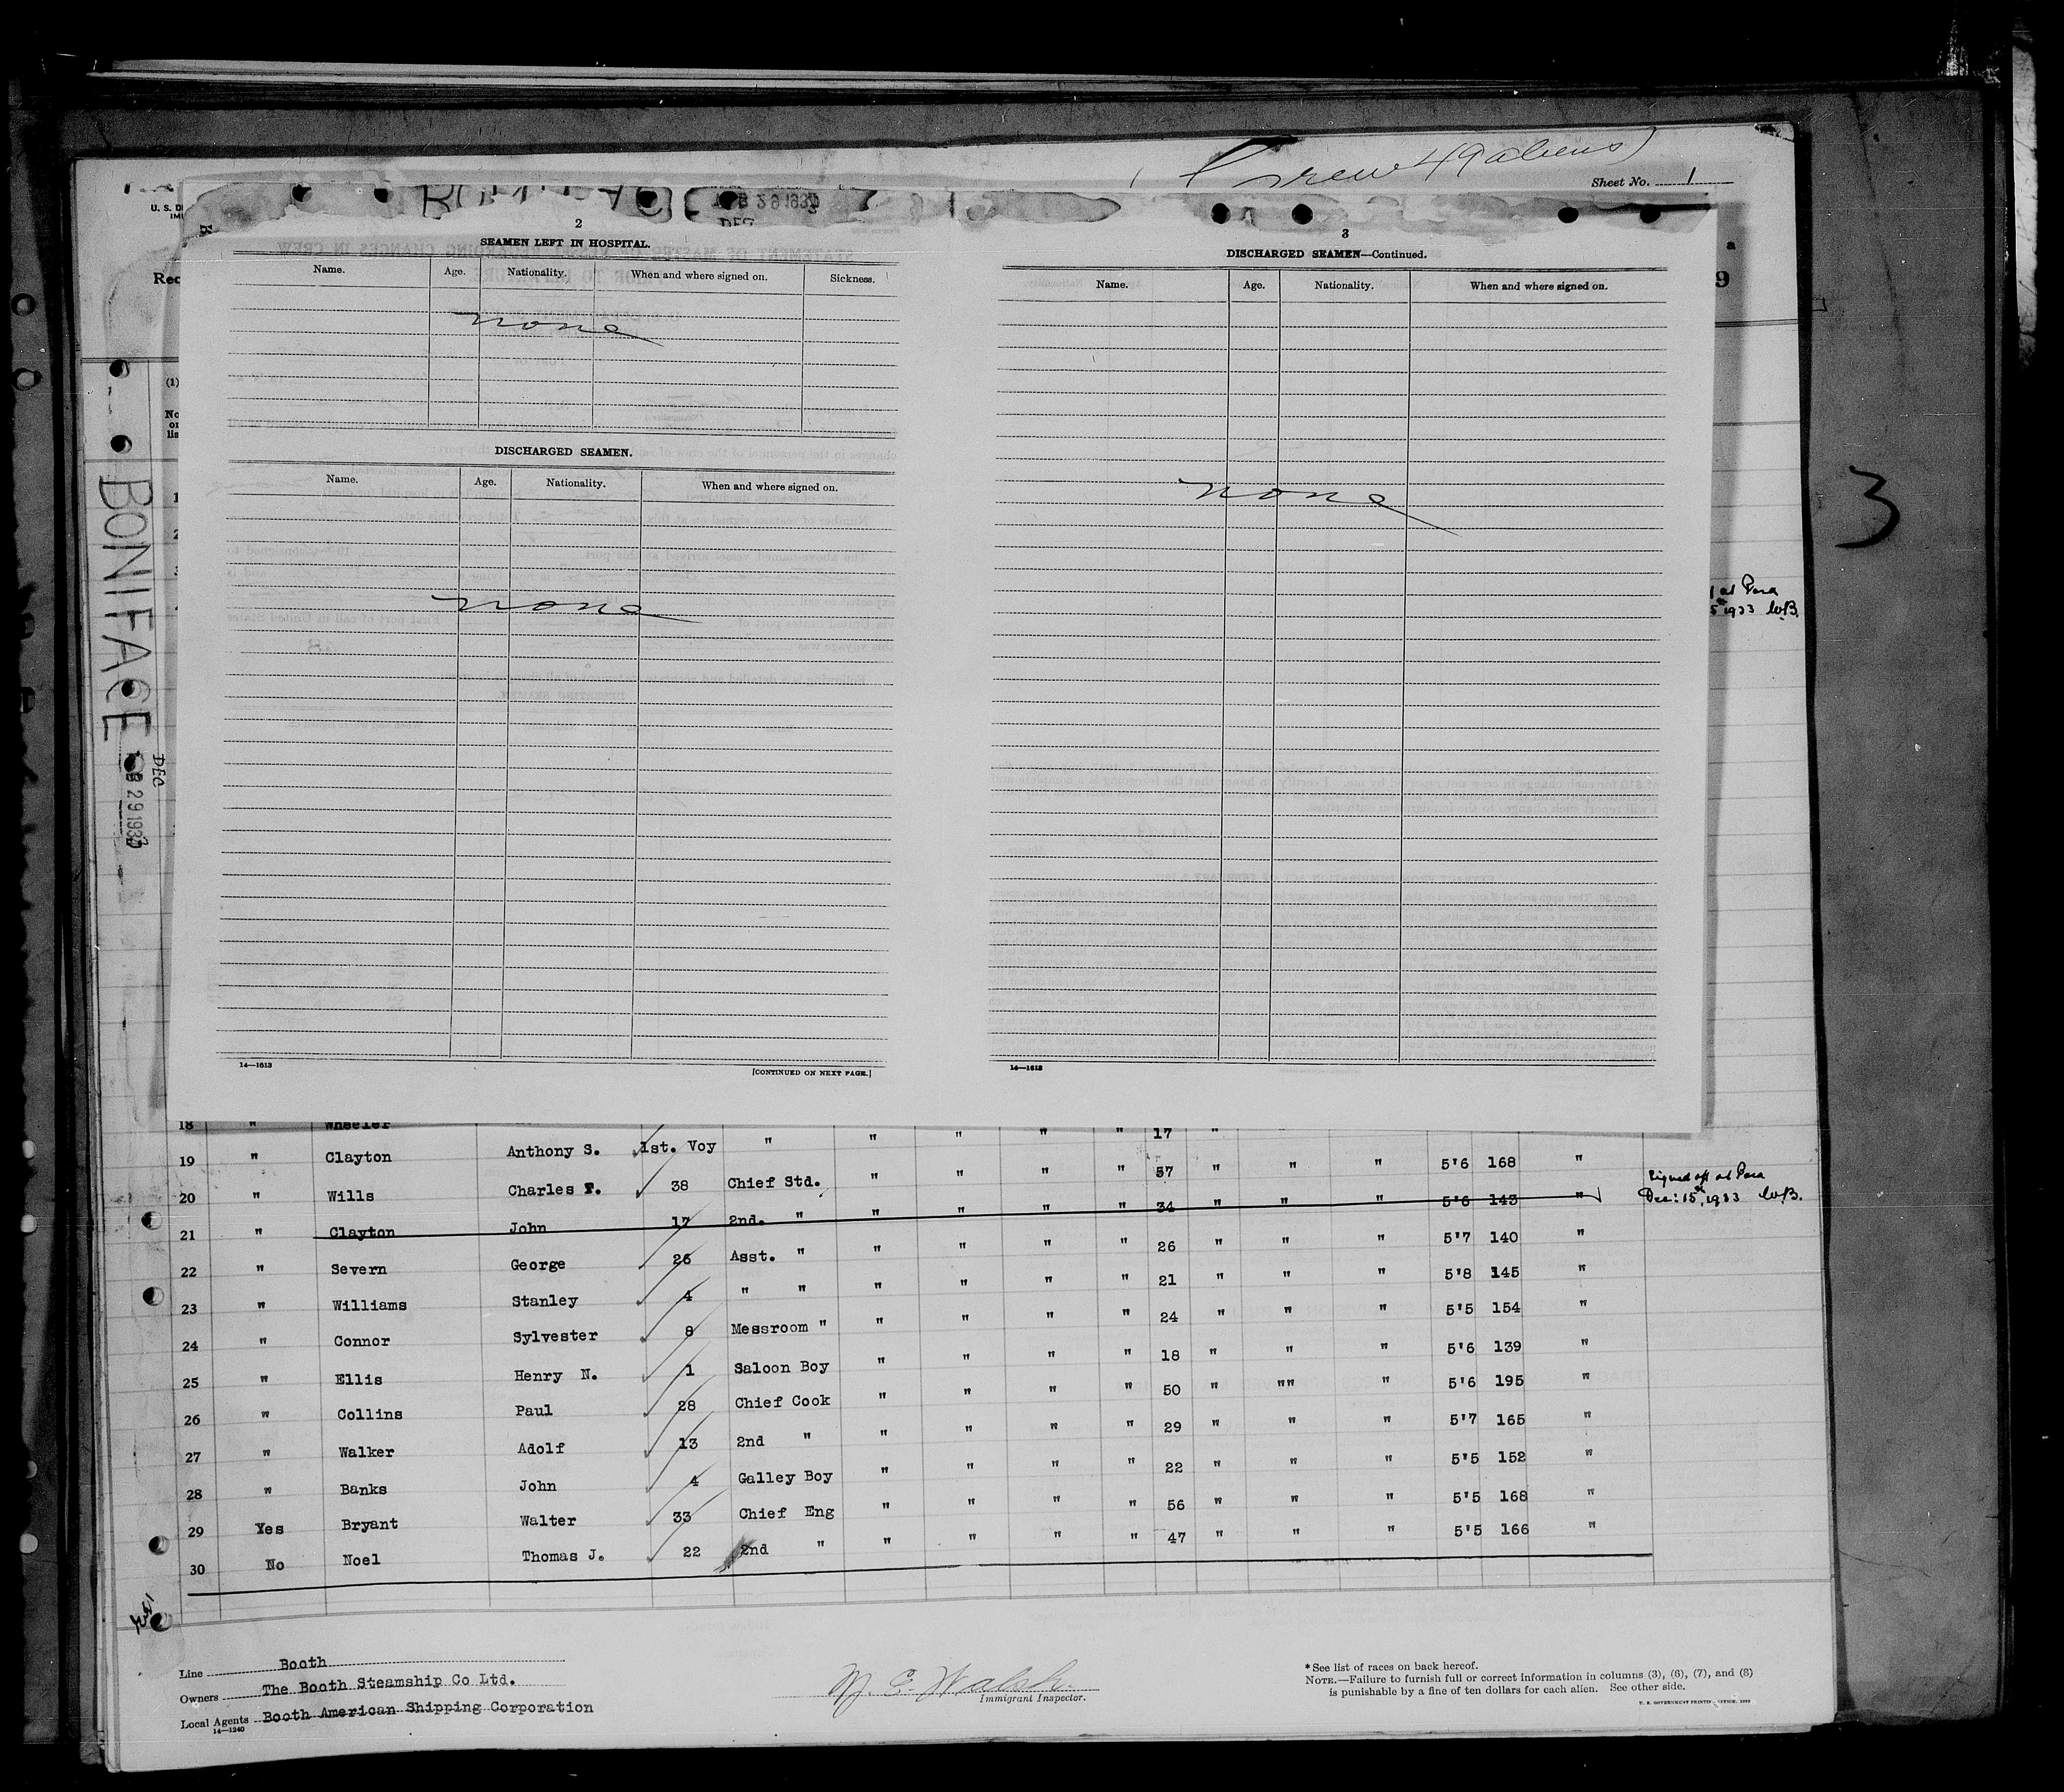 Crew 49 aliens)
Sheet No. 1
U. S. D
IM
BONIFACE
DEC 29 1933
2
SEAMEN LEFT IN HOSPITAL.
Name. Age. Nationality. When and where signed on. Sickness.
none
DISCHARGED SEAMEN.
Name. Age. Nationality. When and where signed on.
none
14—1613
[CONTINUED ON NEXT PAGE.]
3
DISCHARGED SEAMEN—Continued.
Name. Age. Nationality. When and where signed on.
none
14—1613
a
9
Rec
(1)
No
on
lis
3
at Para
5th 1933 WB.
BONIFACE
DEC
29 1933
18 " Wheeler 17 "
19 " Clayton Anthony S. 1st. Voy " " " " "
20 " Wills Charles F. 38 Chief Std. " " " " 57 " " " 5'6 168 "
21 " Clayton John 17 2nd. " " " " " 34 " " " 5'6 143 "
Signed off at Para
Dec: 15th, 1933 WB.
22 " Severn George 26 Asst. " " " " " 26 " " " 5'7 140 "
23 " Williams Stanley 4 " " " " " " 21 " " " 5'8 145 "
24 " Connor Sylvester 8 Messroom " " " " " 24 " " " 5'5 154 "
25 " Ellis Henry N. 1 Saloon Boy " " " " 18 " " " 5'6 139 "
26 " Collins Paul 28 Chief Cook " " " " 50 " "" " 5'6 195 "
27 " Walker Adolf 13 2nd " " " " " 29 " " " 5'7 165 "
28 " Banks John 4 Galley Boy " " " " 22 " " " 5'5 152 "
29 Yes Bryant Walter 33 Chief Eng " " " " 56 " " " 5'5 168 "
30 No Noel Thomas J. 22 2nd " " " " " 47 " " " 5'5 166 "
Line Booth
Owners The Booth Steamship Co Ltd.
Local Agents Booth American Shipping Corporation
14—1240
M. E. Walsh.
Immigrant Inspector.
*See list of races on back hereof.
NOTE.—Failure to furnish full or correct information in columns (3), (6), (7), and (8)
is punishable by a fine of ten dollars for each alien. See other side.
U. S. GOVERNMENT PRINTING OFFICE